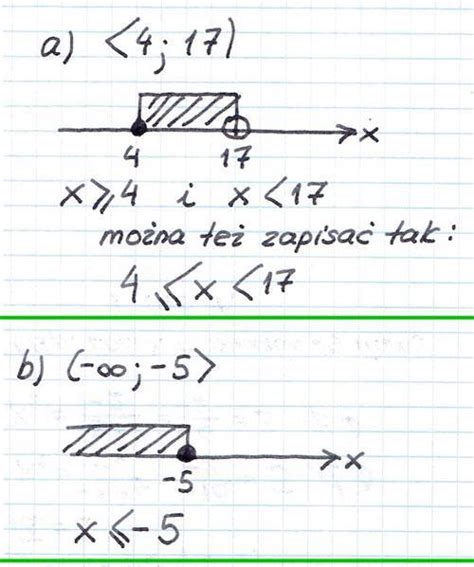 a) <4; 17)
x
4 17
x ⩾ 4 i x < 17
można też zapisać tak:
4 ⩽ x < 17
b) (-∞; -5>
x
-5
x ⩽ -5